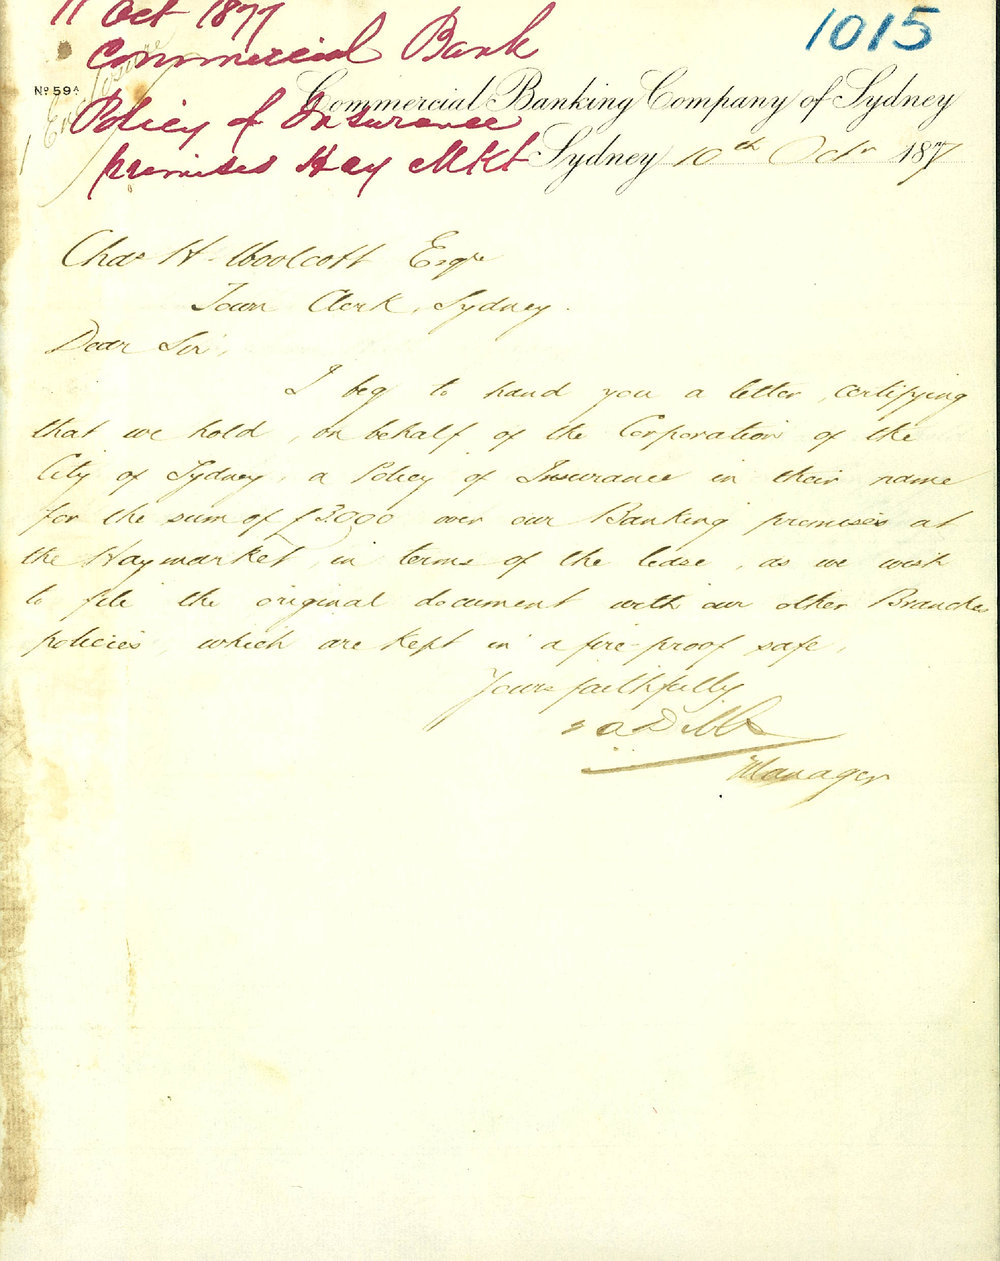 11 Oct 1877
1015
Commercial Bank
1 Enclosure
No 59A
Commercial Banking Company of Sydney
Policy of Insurance
premises Hay Mkt
Sydney 10th Octr 1877
Chas H. Woolcott Esqre
Town Clerk, Sydney.
Dear Sir,
I beg to hand you a letter, certifying
that we hold, on behalf of the Corporation of the
City of Sydney, a Policy of Insurance in their name
for the sum of £3000 over our Banking premises at
the Haymarket, in terms of the lease, as we wish
to file the original document with our other Branches
policies, which are kept in a fire-proof safe.
Yours faithfully
Dibbs
Manager